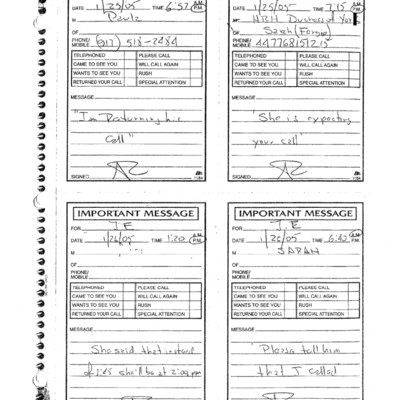 DATE 1/25/05 TIME 6:52 A.M. P.M.
M Paula
OF
PHONE/
MOBILE (917) 518-2484
TELEPHONED PLEASE CALL
CAME TO SEE YOU WILL CALL AGAIN
WANTS TO SEE YOU RUSH
RETURNED YOUR CALL SPECIAL ATTENTION
MESSAGE
"I'm Returning his
Call"
SIGNED
1184
DATE 1/25/05 TIME 7:15 A.M. P.M.
M HRH Duchess of York
OF Sarah (Fergie)
PHONE/
MOBILE
TELEPHONED PLEASE CALL
CAME TO SEE YOU WILL CALL AGAIN
WANTS TO SEE YOU RUSH
RETURNED YOUR CALL SPECIAL ATTENTION
MESSAGE
"She is expecting
your call"
SIGNED
1184
IMPORTANT MESSAGE
FOR J.E
DATE 1/26/05 TIME 1:20 A.M. P.M.
M
OF
PHONE/
MOBILE
TELEPHONED PLEASE CALL
CAME TO SEE YOU WILL CALL AGAIN
WANTS TO SEE YOU RUSH
RETURNED YOUR CALL SPECIAL ATTENTION
MESSAGE
She said that instead
of 1:45 she'll be at 2:00 pm
IMPORTANT MESSAGE
FOR J.E
DATE 1/26/05 TIME 6:40 A.M. P.M.
M SARAH
OF
PHONE/
MOBILE
TELEPHONED PLEASE CALL
CAME TO SEE YOU WILL CALL AGAIN
WANTS TO SEE YOU RUSH
RETURNED YOUR CALL SPECIAL ATTENTION
MESSAGE
"Please tell him
that I called